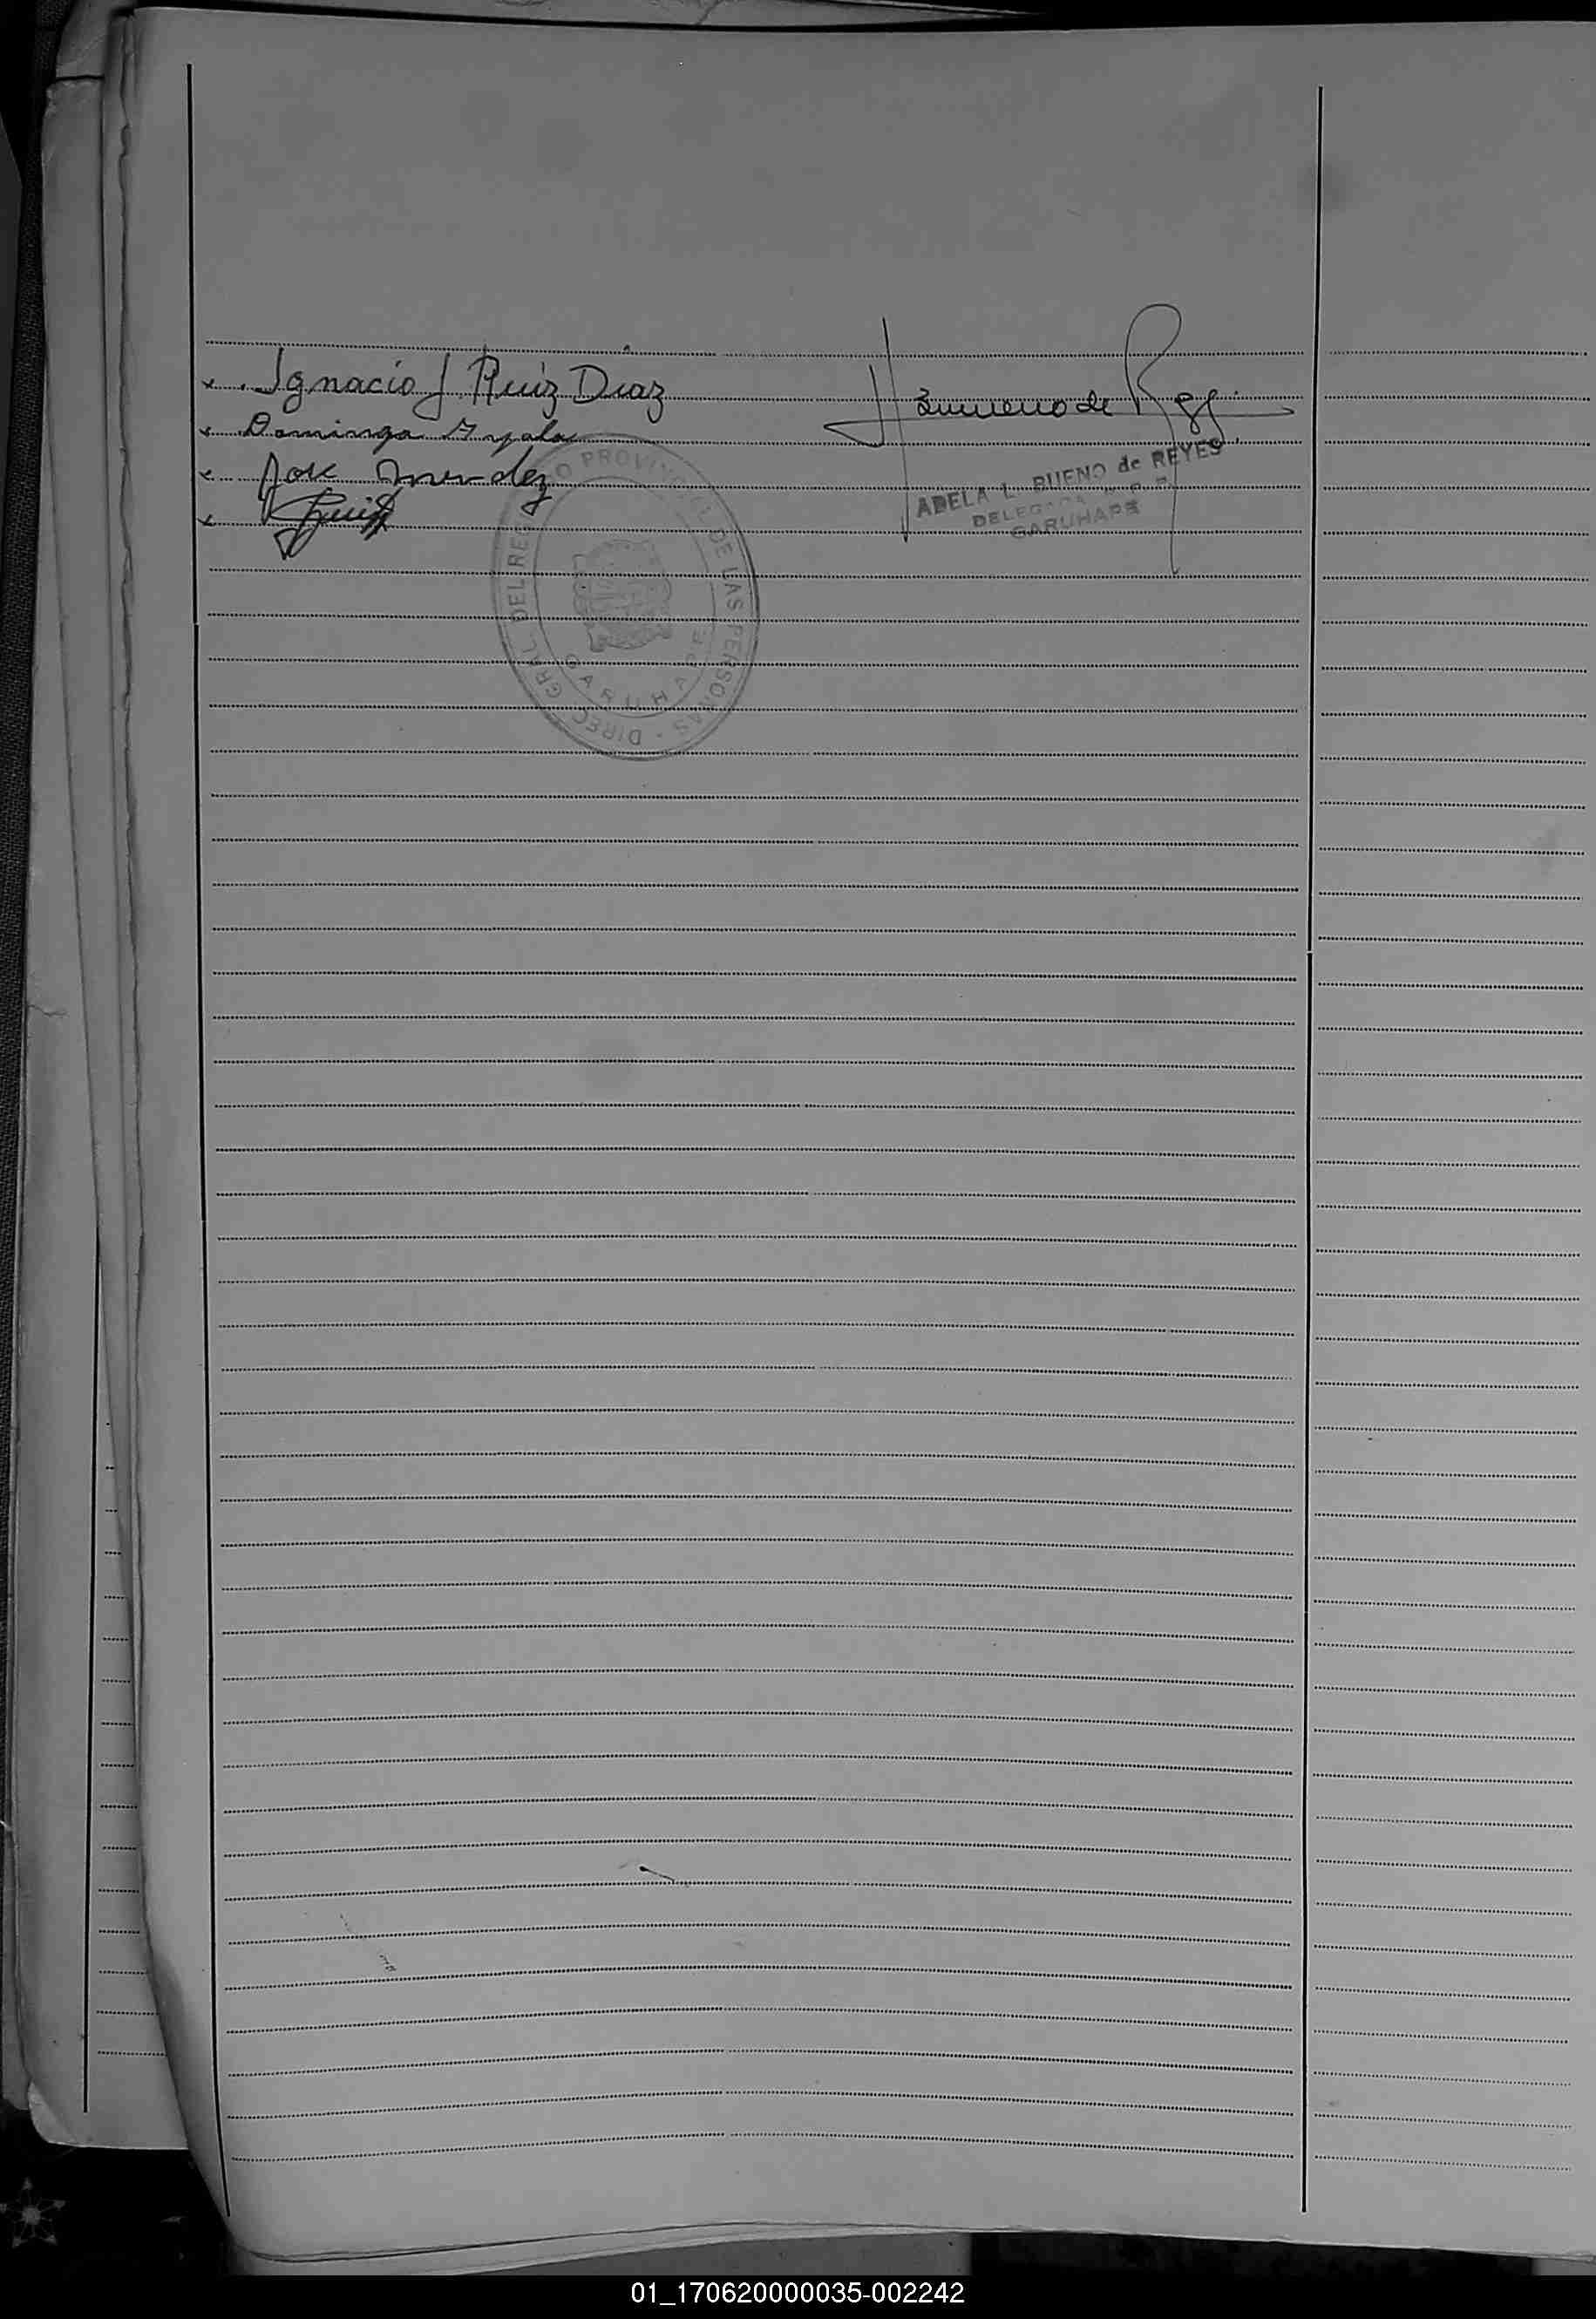 x Ignacio J Ruiz Diaz
x Dominga Ayala
x Jose Mendez
x
Bueno de Reyes
ADELA L. BUENO de REYES
DELEGADA
GARUHAPE
DIREC. GRAL. DEL REGISTRO PROVINCIAL DE LAS PERSONAS -
GARUHAPE
01_170620000035-002242